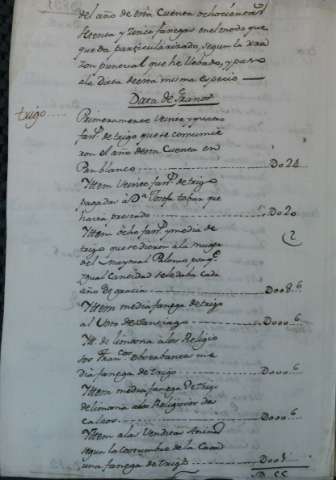 del año de esta Cuenta ochocientas
treinta y cinco fanegas en el modo que
queda particularizado, segun la razon
puntual que he llebado, y paso
a la Data de esta misma especie
Data de Granos
trigo
Primeramente veinte y quatro
fan.s de trigo que se consumie
ron el año de esta Cuenta en
Pan blanco D024
Ittem veinte fan.s de trigo
pagadas à D.n Josefa que
havia prestado D020
Ittem ocho fan.s y media de
trigo que se dieron a la muger
del Mayoral
igual cantidad se le daba cada
año de gracia D008.6
Ittem media fanega de trigo
al Voto de Santiago D000.6
It. de limosna a los Religio
sos Fran.cos Observantes me
dia fanega de trigo D000.6
Ittem media fanega de trigo
de limosna a los Religiosos
calzos D000.6
Ittem a la
segun la costumbre de la Casa
una fanega de trigo D001